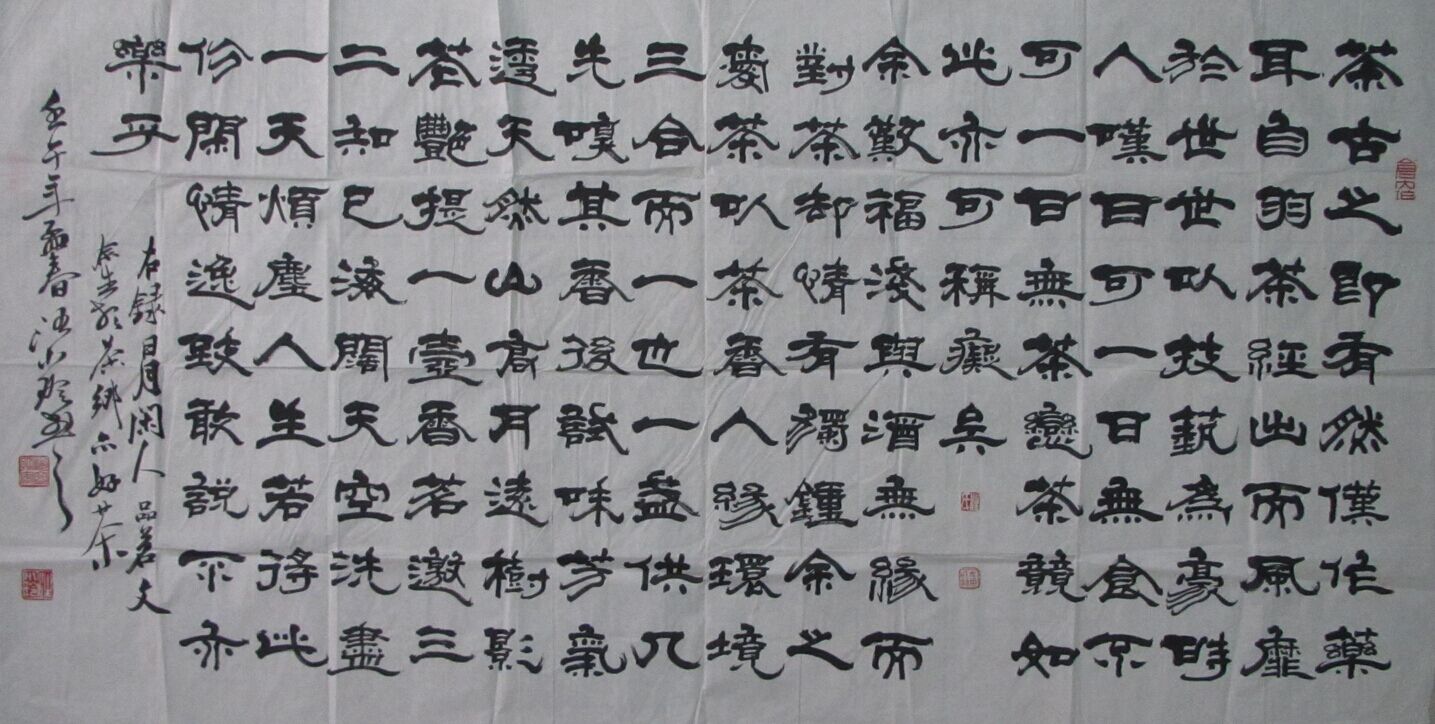 茶古之即有然僅作藥
耳自羽茶經出而風靡
於世世以技藝為豪時
人嘆曰可一日無食不
可一日無茶戀茶競如
此亦可稱癡矣
余歎福淺與酒無緣而
對茶却情有獨鍾余之
愛茶以茶香人緣環境
三合而一也一盞供几
先嗅其香後試味芳氣
透天然山高月遠樹影
茗艷提一壺香茗邀三
二知已海闊天空洗盡
一天煩塵人生若得此
份閑情逸致敢說不亦
樂乎
右錄日月閑人品茗文
余出於茶鄉亦好茶
壬午年孟春